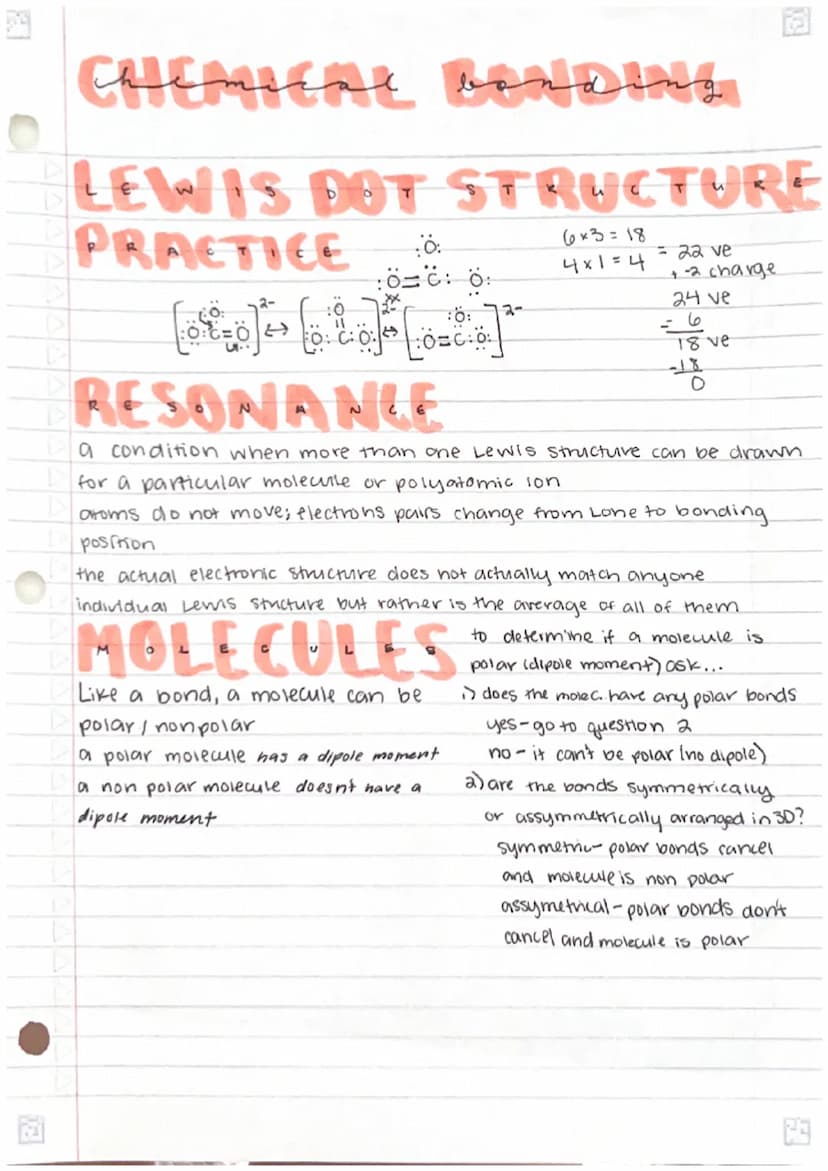 CHEMICAL BONDING
chemical bonding
LEWIS DOT STRUCTURE
LEWIS DOT STRUCTURE
PRACTICE
PRACTICE
:Ö:
:Ö=C̈: Ö:
6x3=18
4x1=4 = 22 ve
+ -2 charge
24 ve
- 6
18 ve
-18
0
[:Ö: :Ö:C=Ö]2- ↔ [:Ö :Ö: C:Ö:]2- ↔ [:Ö: :Ö=C:Ö:]2-
RESONANCE
RESONANCE
a condition when more than one Lewis structure can be drawn
for a particular molecule or polyatomic ion
atoms do not move; electrons pairs change from Lone to bonding
position
the actual electronic structure does not actually match anyone
individual Lewis stucture but rather is the average of all of them
MOLECULES
MOLECULES
Like a bond, a molecule can be
polar / nonpolar
a polar molecule has a dipole moment
a non polar molecule doesn't have a
dipole moment
to determine if a molecule is
polar (dipole moment) ask...
1) does the molec. have any polar bonds
yes - go to question 2
no - it can't be polar (no dipole)
2) are the bonds symmetrically
or assymmetrically arranged in 3D?
symmetric - polar bonds cancel
and molecule is non polar
assymetrical - polar bonds don't
cancel and molecule is polar